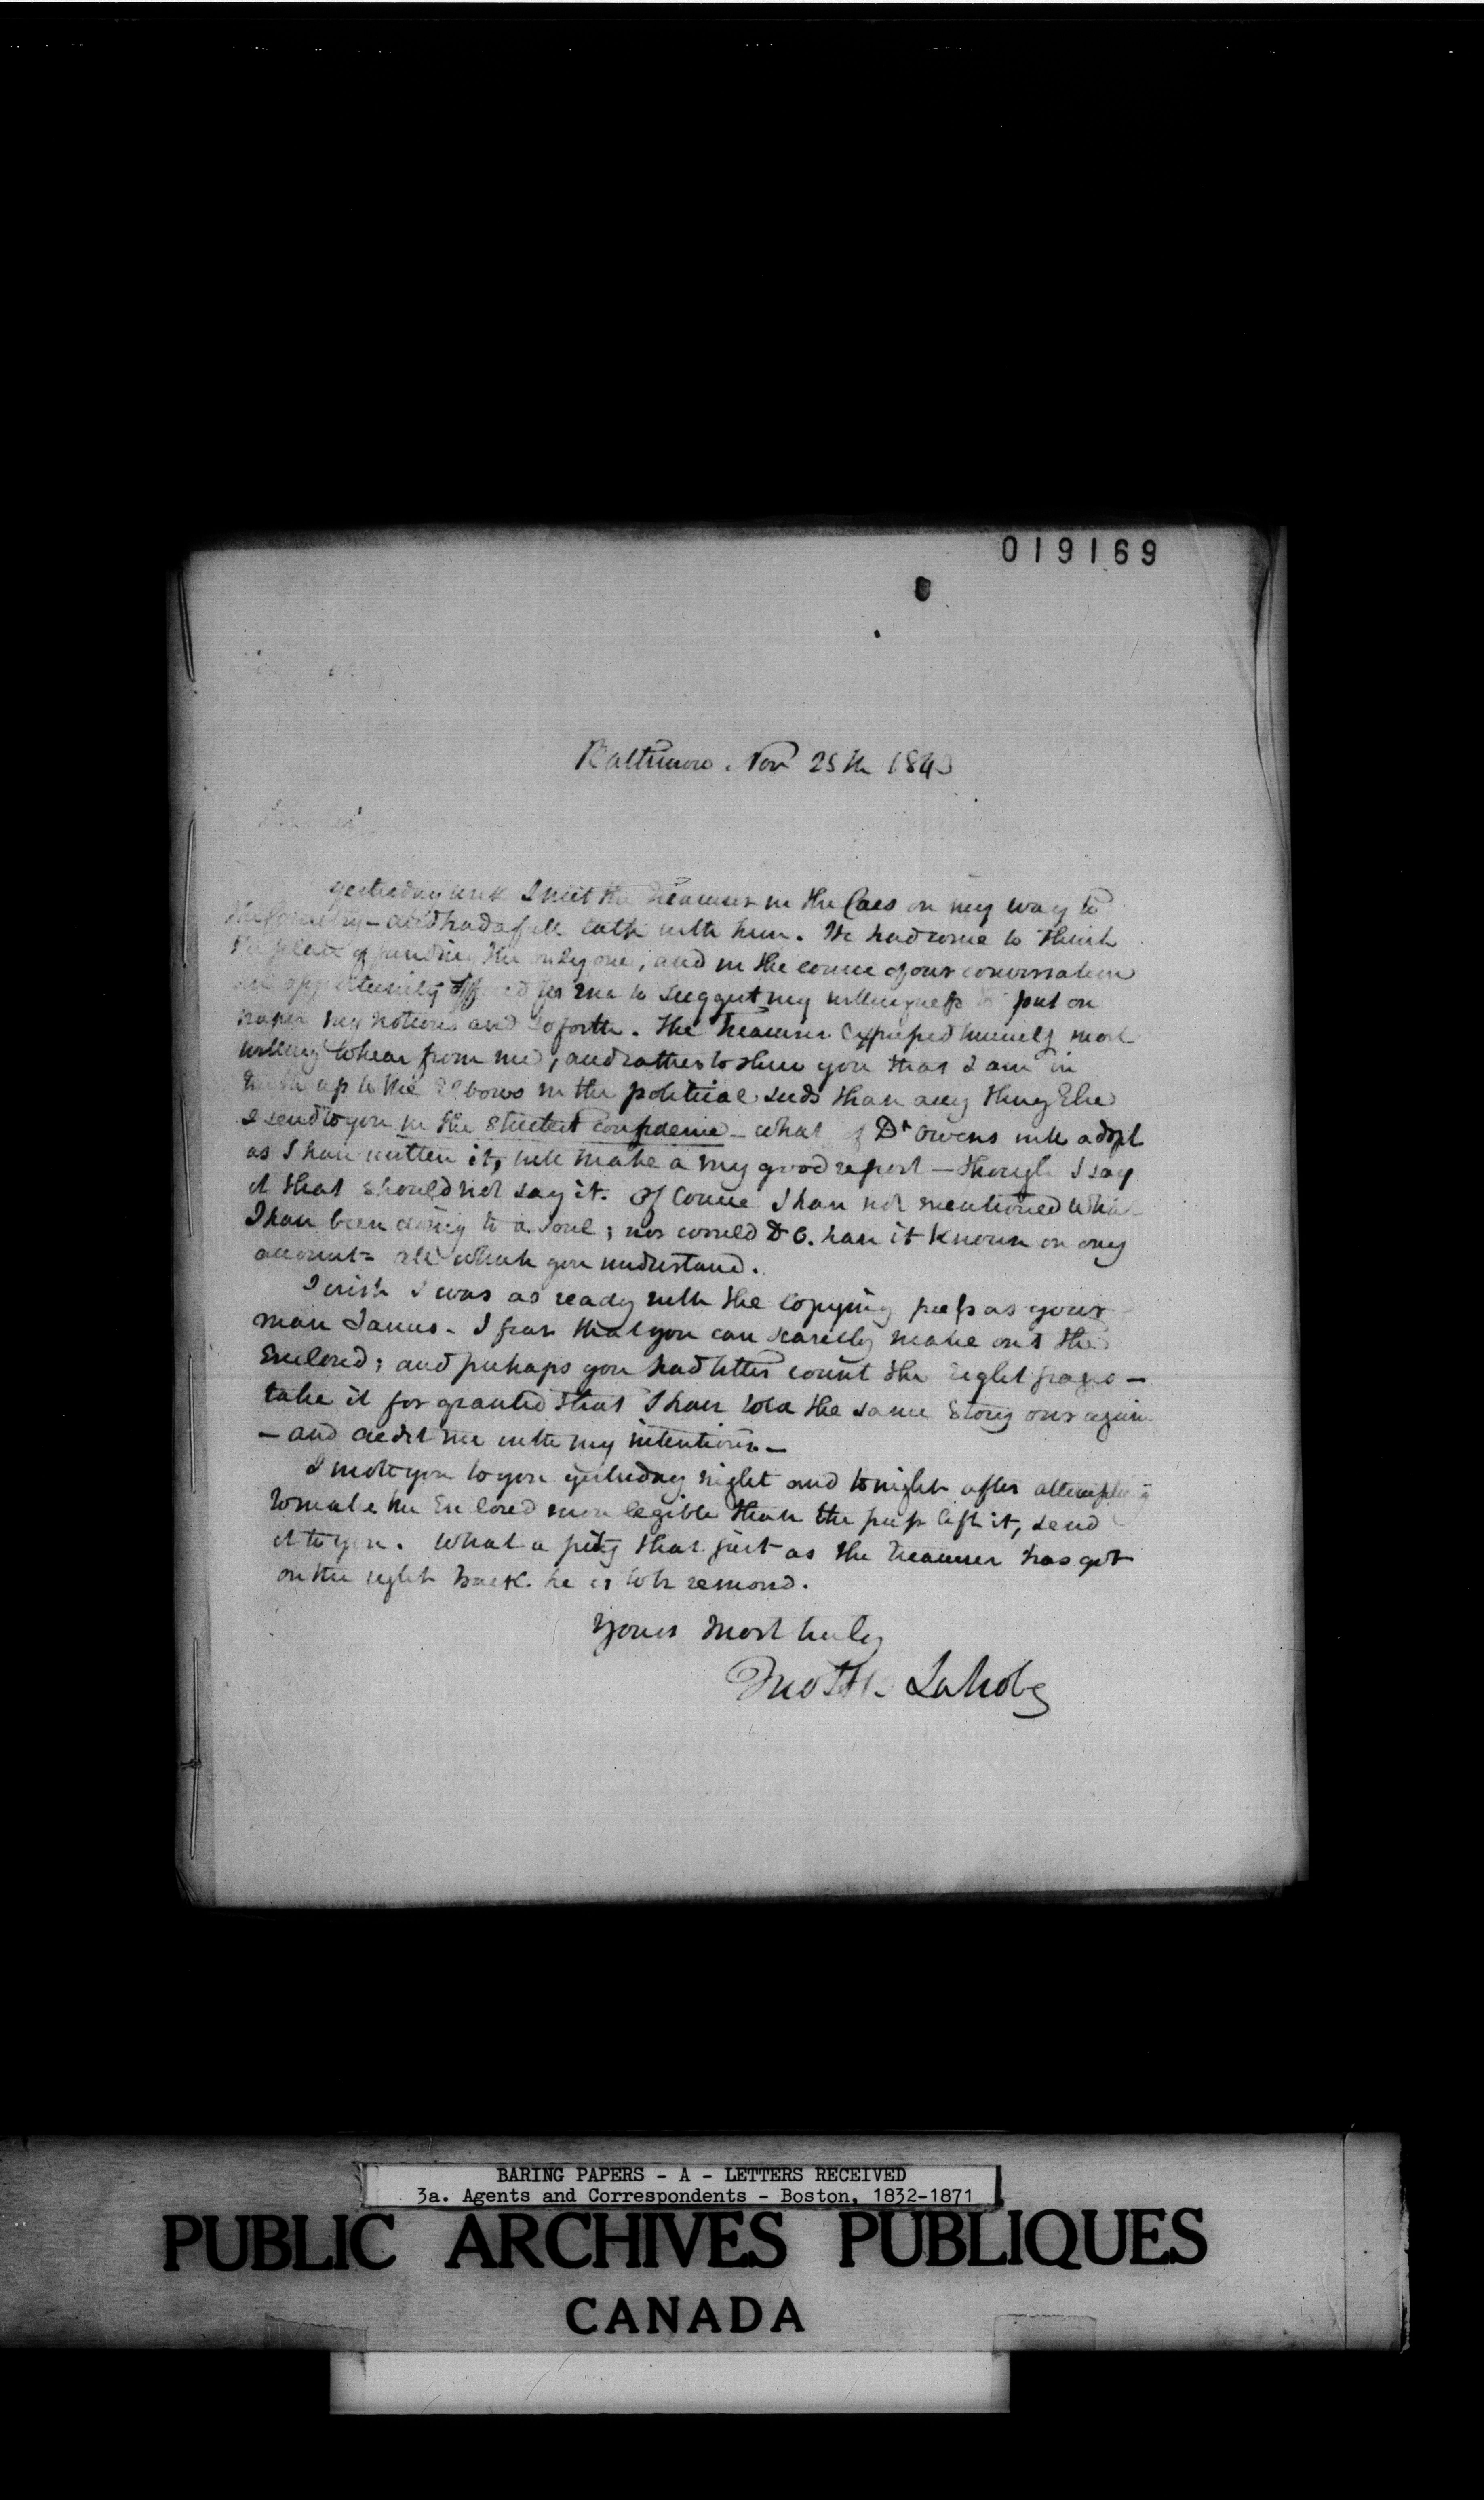 019169
Baltimore Nov 25th 1843
yesterday week I met the Treasurer in the Cars on my way to
the Country - and had a full talk with him. He had come to think
the plan of funding the only one, and in the course of our conversation
an opportunity offered for me to suggest my willingness to put on
paper my notions and so forth. The Treasurer expressed himself most
willing to hear from me, and rather to shew you that I am in
truth up to the Elbows in the political suds than any thing Else
I send to you in the strictest confidence - what if Dr Owens will adopt
as I have written it, will make a very good report - though I say
it that should not say it. Of Course I have not mentioned what
I have been doing to a soul; nor would D O. have it known on any
account = all which you understand.
I wish I was as ready with the copying press as your
man James - I fear that you can scarcely make out the
Enclosed; and perhaps you had better count the eight pages -
take it for granted that I have told the same story over again
- and credit me with my intentions -
I wrote you to you yesterday night and to night after attempting
to make the Enclosed more legible than the press left it, send
it to you. What a pity that just as the Treasurer has got
on the right track he is to be removed.
Yours most truly
Jno H B Latrobe
BARING PAPERS - A - LETTERS RECEIVED
3a. Agents and Correspondents - Boston, 1832-1871
PUBLIC ARCHIVES PUBLIQUES
CANADA